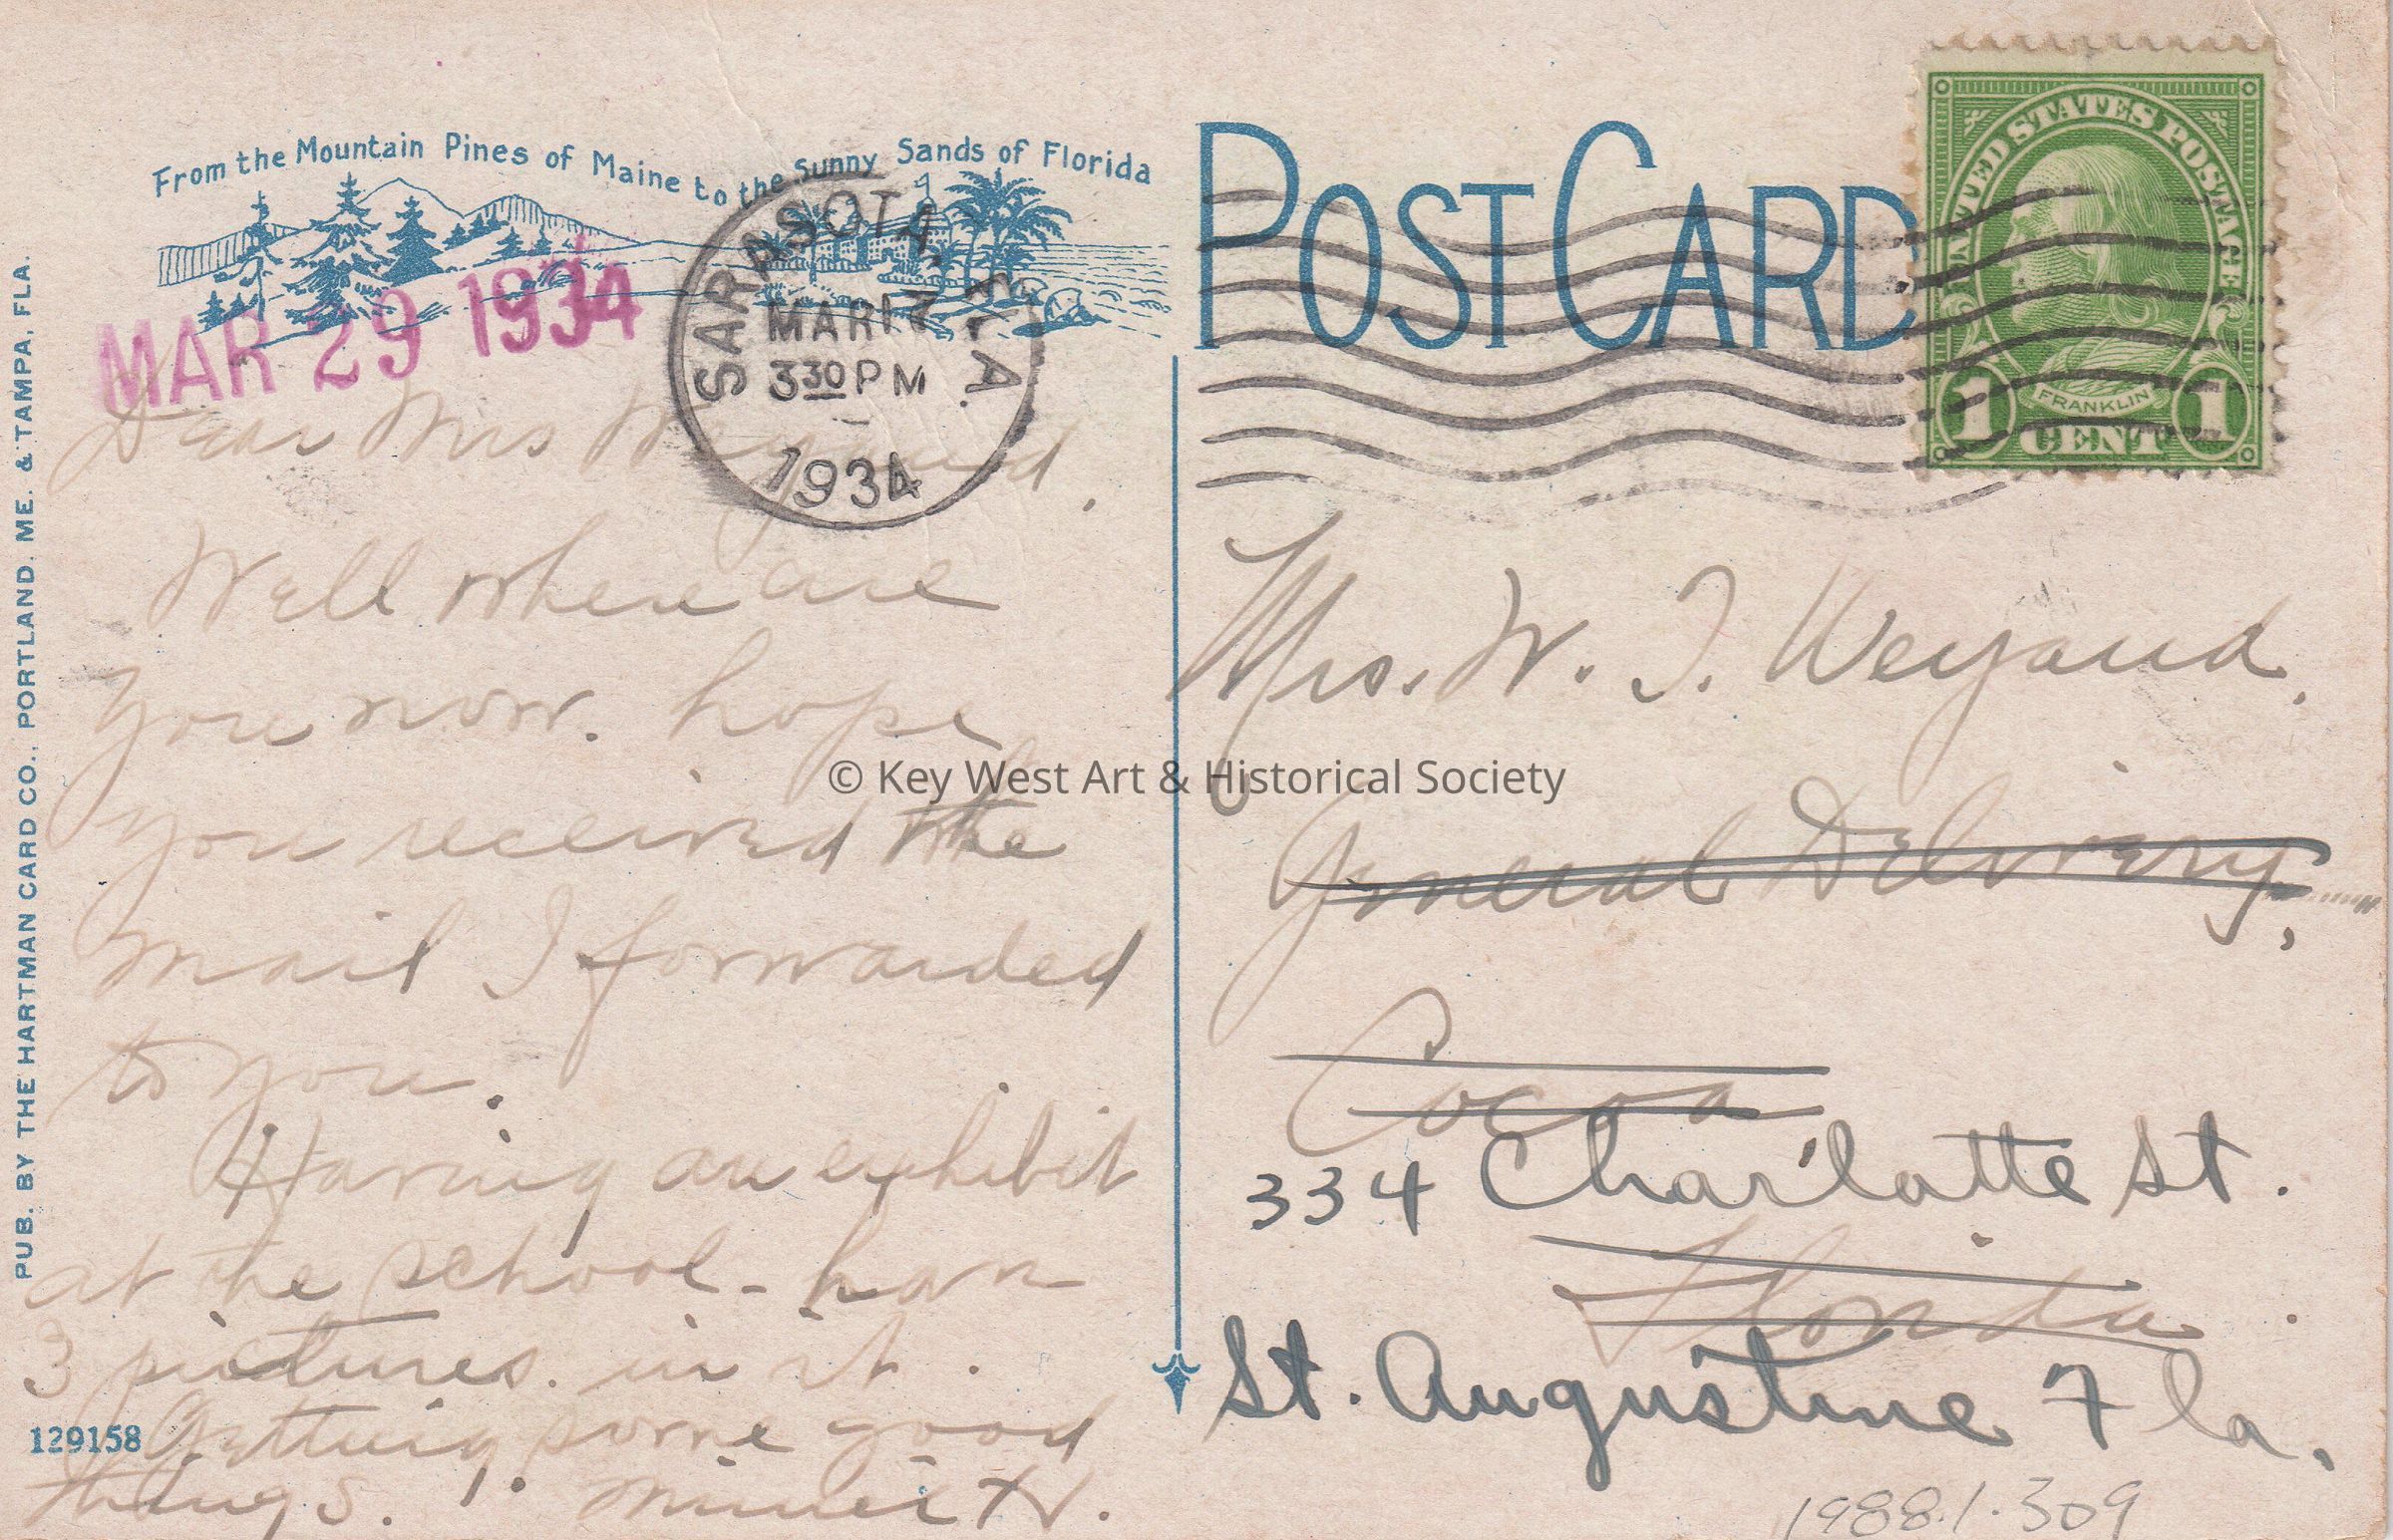 From the Mountain Pines of Maine to the Sunny Sands of Florida
POST CARD
UNITED STATES POSTAGE
FRANKLIN
1 CENT 1
MAR 29 1934
SARASOTA FLA.
MAR 17
3 30 PM
1934
Dear Mrs Weyand.
Well where are
you now. hope
you received the
mail I forwarded
to you.
Having an exhibit
at the school - have
3 pictures in it.
Getting some good
things.
129158
PUB. BY THE HARTMAN CARD CO., PORTLAND, ME. & TAMPA, FLA.
Mrs. W. T. Weyand.
General Delivery,
Cocoa
334 Charlotte St.
Florida.
St. Augustine Fla.
1988.1.309
© Key West Art & Historical Society